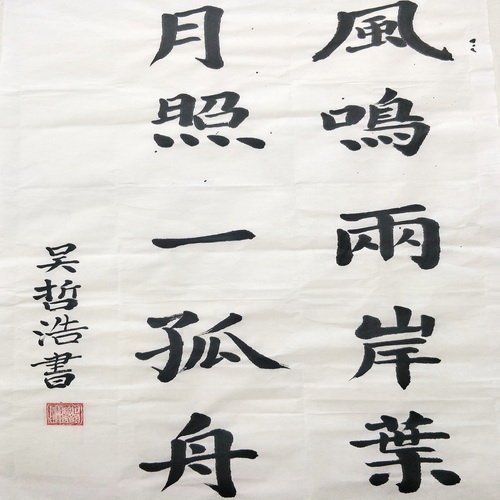 風鳴兩岸葉
月照一孤舟
吳哲浩書